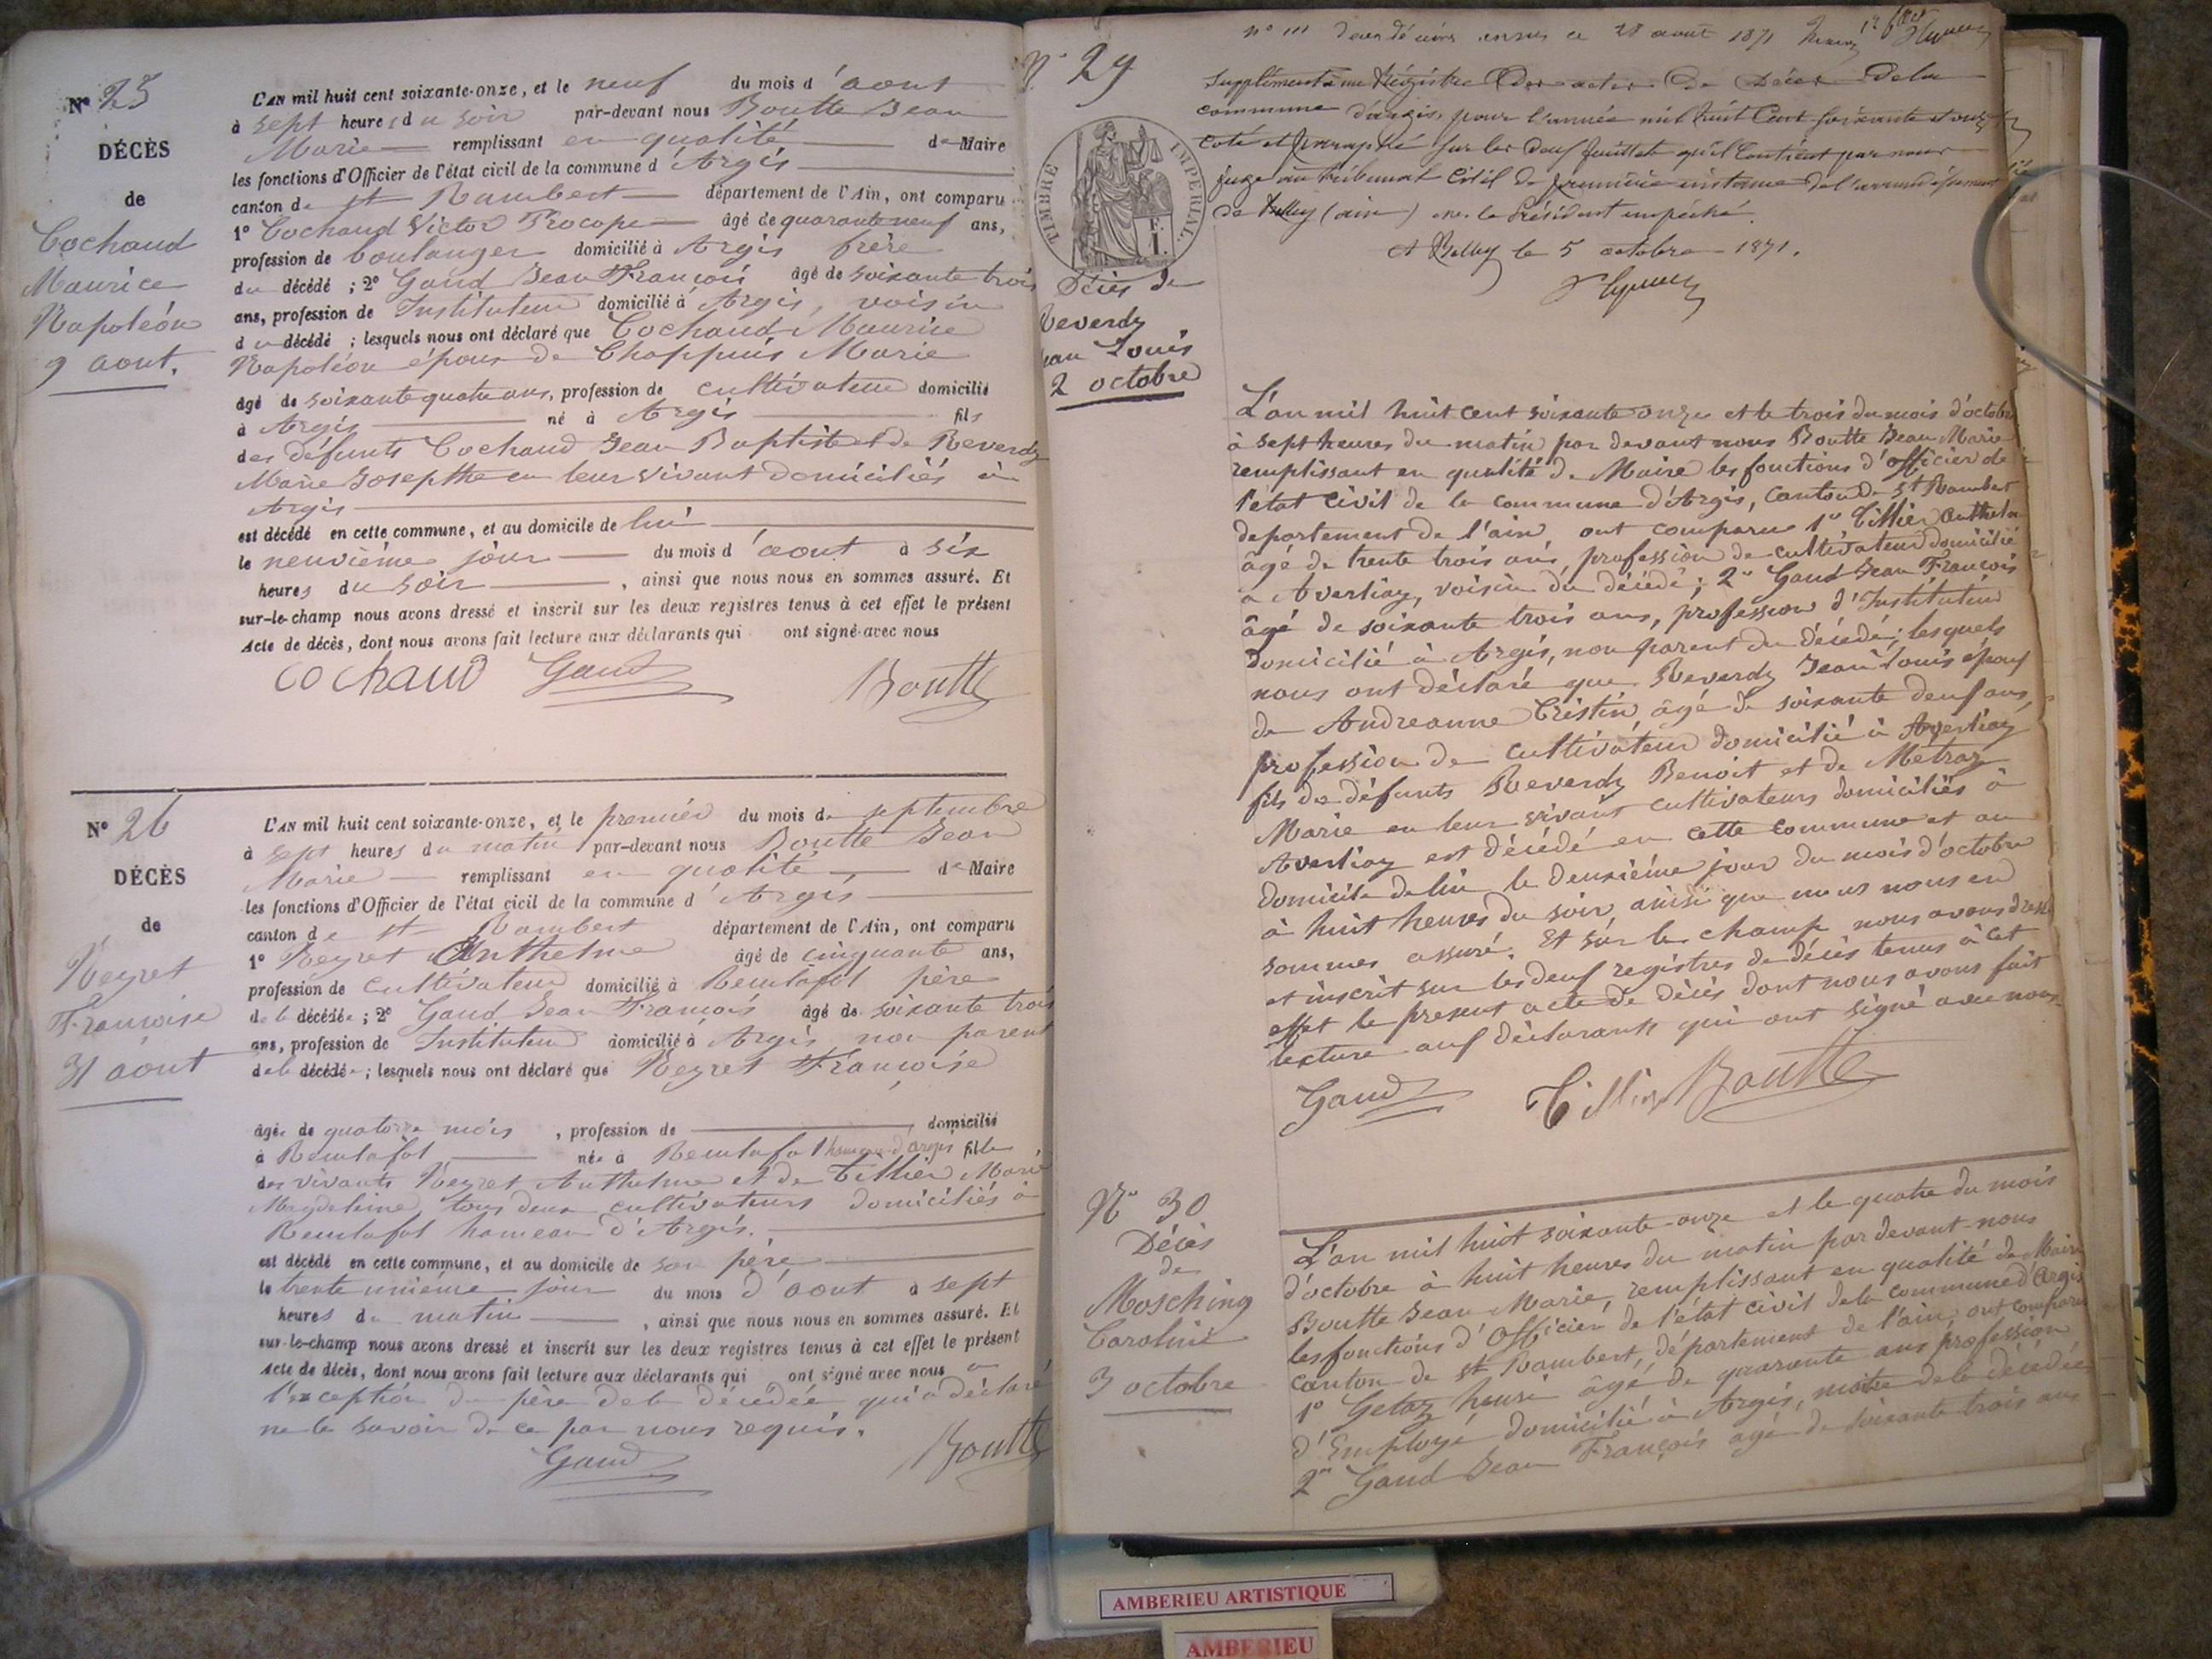 N° 25
DÉCÈS
de
Cochaud
Maurice
Napoléon
9 aout.
L'AN mil huit cent soixante-onze, et le neuf du mois d'aout
à sept heures du soir par-devant nous Boutte Jean
Marie remplissant en qualité de Maire
les fonctions d'Officier de l'état civil de la commune d'Argis
canton de St Rambert département de l'Ain, ont comparu
1° Cochaud Victor Procope âgé de quarante neuf ans,
profession de boulanger domicilié à Argis frère
du décédé ; 2° Gaud Jean François âgé de soixante trois
ans, profession de Instituteur domicilié à Argis, voisin
du décédé ; lesquels nous ont déclaré que Cochaud Maurice
Napoléon époux de Chappuis Marie
âgé de soixante quatre ans, profession de cultivateur domicilié
à Argis né à Argis fils
des défunts Cochaud Jean Baptiste et de Reverdy
Marie Josephte en leur vivant domiciliés à
Argis
est décédé en cette commune, et au domicile de lui
le neuvième jour du mois d'aout à six
heures du soir, ainsi que nous nous en sommes assuré. Et
sur-le-champ nous avons dressé et inscrit sur les deux registres tenus à cet effet le présent
Acte de décès, dont nous avons fait lecture aux déclarants qui ont signé avec nous
Cochaud Gaud Boutte
N° 26
DÉCÈS
de
Reyret
Françoise
31 aout
L'AN mil huit cent soixante-onze, et le premier du mois de septembre
à sept heures du matin par-devant nous Boutte Jean
Marie remplissant en qualité de Maire
les fonctions d'Officier de l'état civil de la commune d'Argis
canton de St Rambert département de l'Ain, ont comparu
1° Reyret Anthelme âgé de cinquante ans,
profession de cultivateur domicilié à Reculafol père
de la décédée ; 2° Gaud Jean François âgé de soixante trois
ans, profession de Instituteur domicilié à Argis non parent
de la décédée ; lesquels nous ont déclaré que Reyret Françoise
âgée de quatorze mois, profession de domicilié
à Reculafol née à Reculafol hameau d'Argis fille
des vivants Reyret Anthelme et de Tillier Marie
Magdeleine, tous deux cultivateurs domiciliés à
Reculafol hameau d'Argis.
est décédé en cette commune, et au domicile de son père
le trente unième jour du mois d'aout à sept
heures du matin, ainsi que nous nous en sommes assuré. Et
sur-le-champ nous avons dressé et inscrit sur les deux registres tenus à cet effet le présent
Acte de décès, dont nous avons fait lecture aux déclarants qui ont signé avec nous à
l'exception du père de la décédée qui a déclaré
ne le savoir de ce par nous requis.
Gaud Boutte
28 aout 1871
N° 29
Supplément au Régistre des actes de Décès de la
commune d'argis, pour l'année mil huit Cent soixante et onze
coté et paraphé sur les deux feuillets qu'il contient par nous
juge au tribunal civil de première instance de l'arrondissement
de Belley (ain) Mr. le Président empêché.
A Belley le 5 octobre 1871.
TIMBRE IMPERIAL
Décès de
Reverdy
Jean Louis
2 octobre
L'an mil huit cent soixante onze et le trois du mois d'octobre
à sept heures du matin par devant nous Boutte Jean Marie
remplissant en qualité de Maire les fonctions d'officier de
l'état civil de la commune d'Argis, canton de St Rambert
departement de l'ain, ont comparu 1° Tillier Anthelme
âgé de trente trois ans, profession de cultivateur domicilié
à Averliaz, voisin du décédé; 2° Gaud Jean François
âgé de soixante trois ans, profession d'Instituteur
domicilié à Argis, non parent du décédé; lesquels
nous ont déclaré que Reverdy Jean Louis époux
de Andreanne Cristin, âgé de soixante deux ans,
profession de cultivateur domicilié à Averliaz
fils de défunts Reverdy Benoit et de Metraz
Marie en leur vivant cultivateurs domiciliés à
Averliaz est décédé en cette commune et au
domicile de lui le deuxième jour du mois d'octobre
à huit heures du soir, ainsi que nous nous en
sommes assuré. Et sur le champ nous avons dressé
et inscrit sur les deux registres de décès tenus à cet
effet le présent acte de décès dont nous avons fait
lecture aux déclarants qui ont signé avec nous
Gaud Tillier Boutte
N° 30
Décès
de
Mosching
Caroline
3 octobre
L'an mil huit soixante-onze et le quatre du mois
d'octobre à huit heures du matin par devant nous
Boutte Jean Marie, remplissant en qualité de Maire
les fonctions d'Officier de l'état civil de la commune d'Argis
canton de St Rambert, département de l'ain, ont comparu
1° Getaz henri âgé de quarante ans profession
d'Employé domicilié à Argis, de la décédée
2° Gaud Jean François âgé de soixante trois ans
AMBERIEU ARTISTIQUE
AMBERIEU